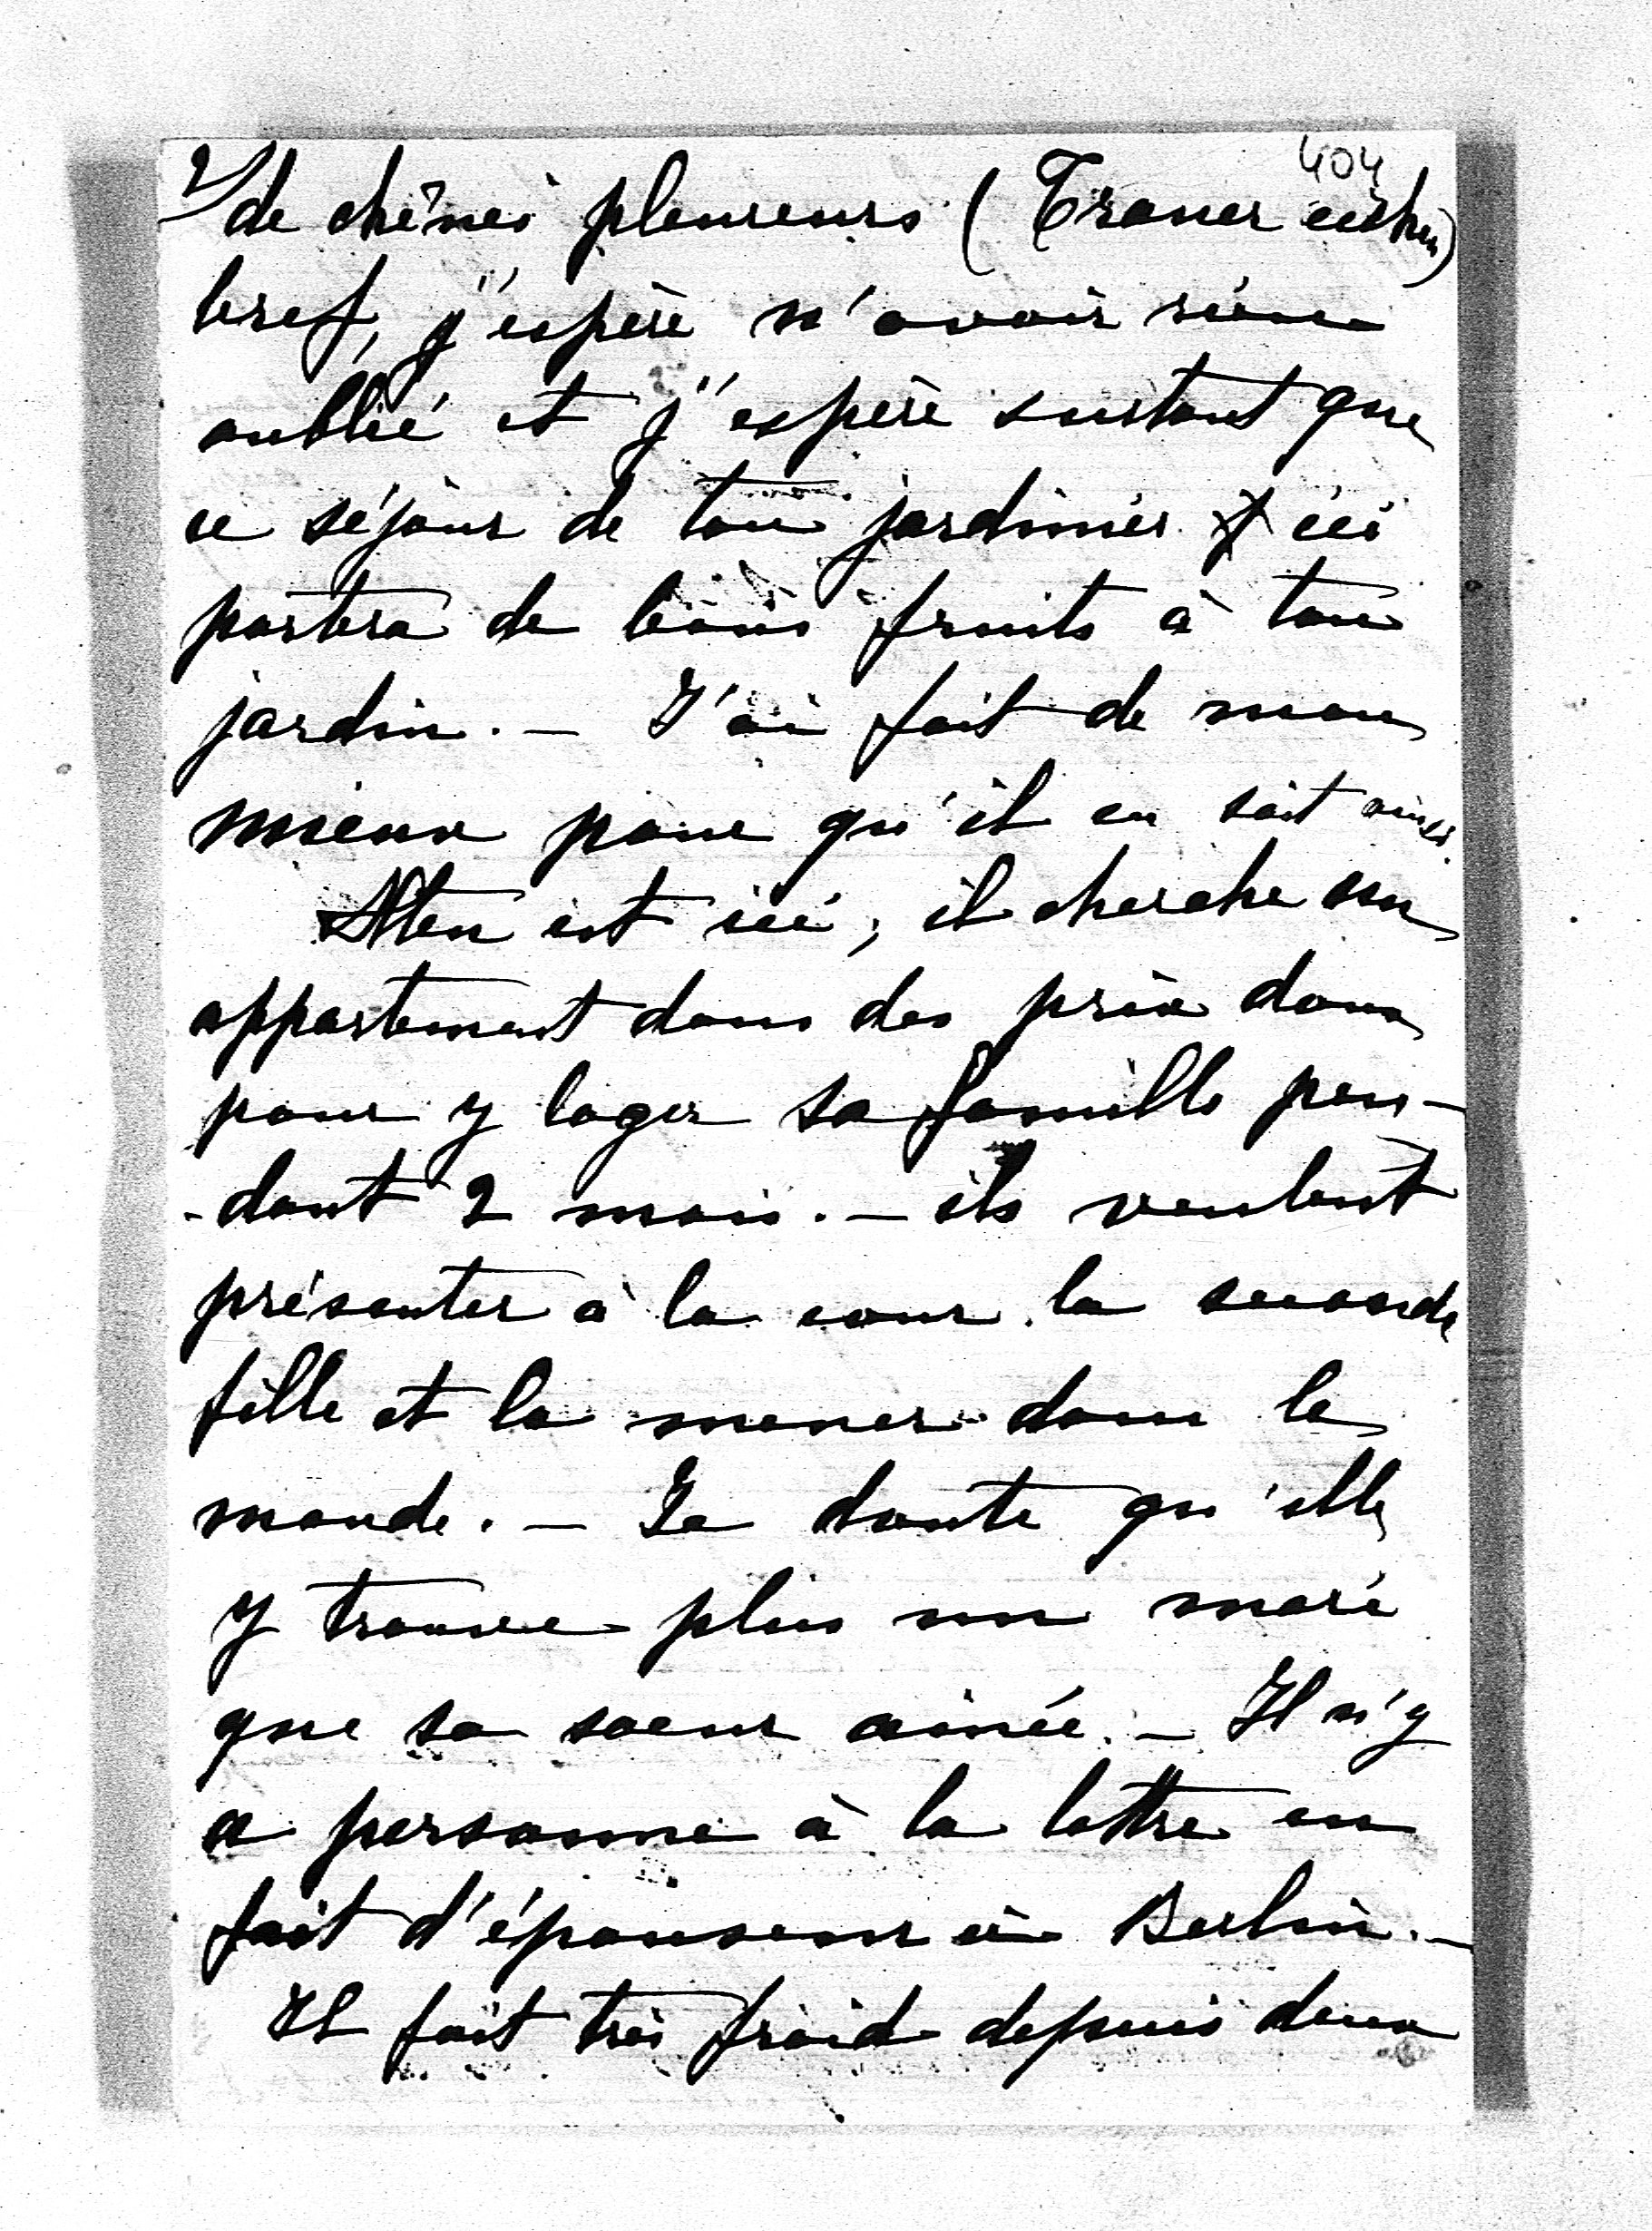 404
2/ de chênes pleureurs (Trauer eichen)
bref, j'espère n'avoir rien
oublié et j'espère surtout que
ce séjour de ton jardinier ici
portera de bons fruits à ton
jardin. — J'ai fait de mon
mieux pour qu'il en soit ainsi.
Alten est ici, il cherche un
appartement dans des prix doux
pour y loger sa famille pen-
-dant 2 mois. — ils veulent
présenter à la cour la seconde
fille et la mener dans le
monde. — Je doute qu'elle
y trouve plus un mari
que sa soeur ainée. — Il n'y
a personne à la lettre en
fait d'épouseur à Berlin. —
Il fait très froid depuis deux